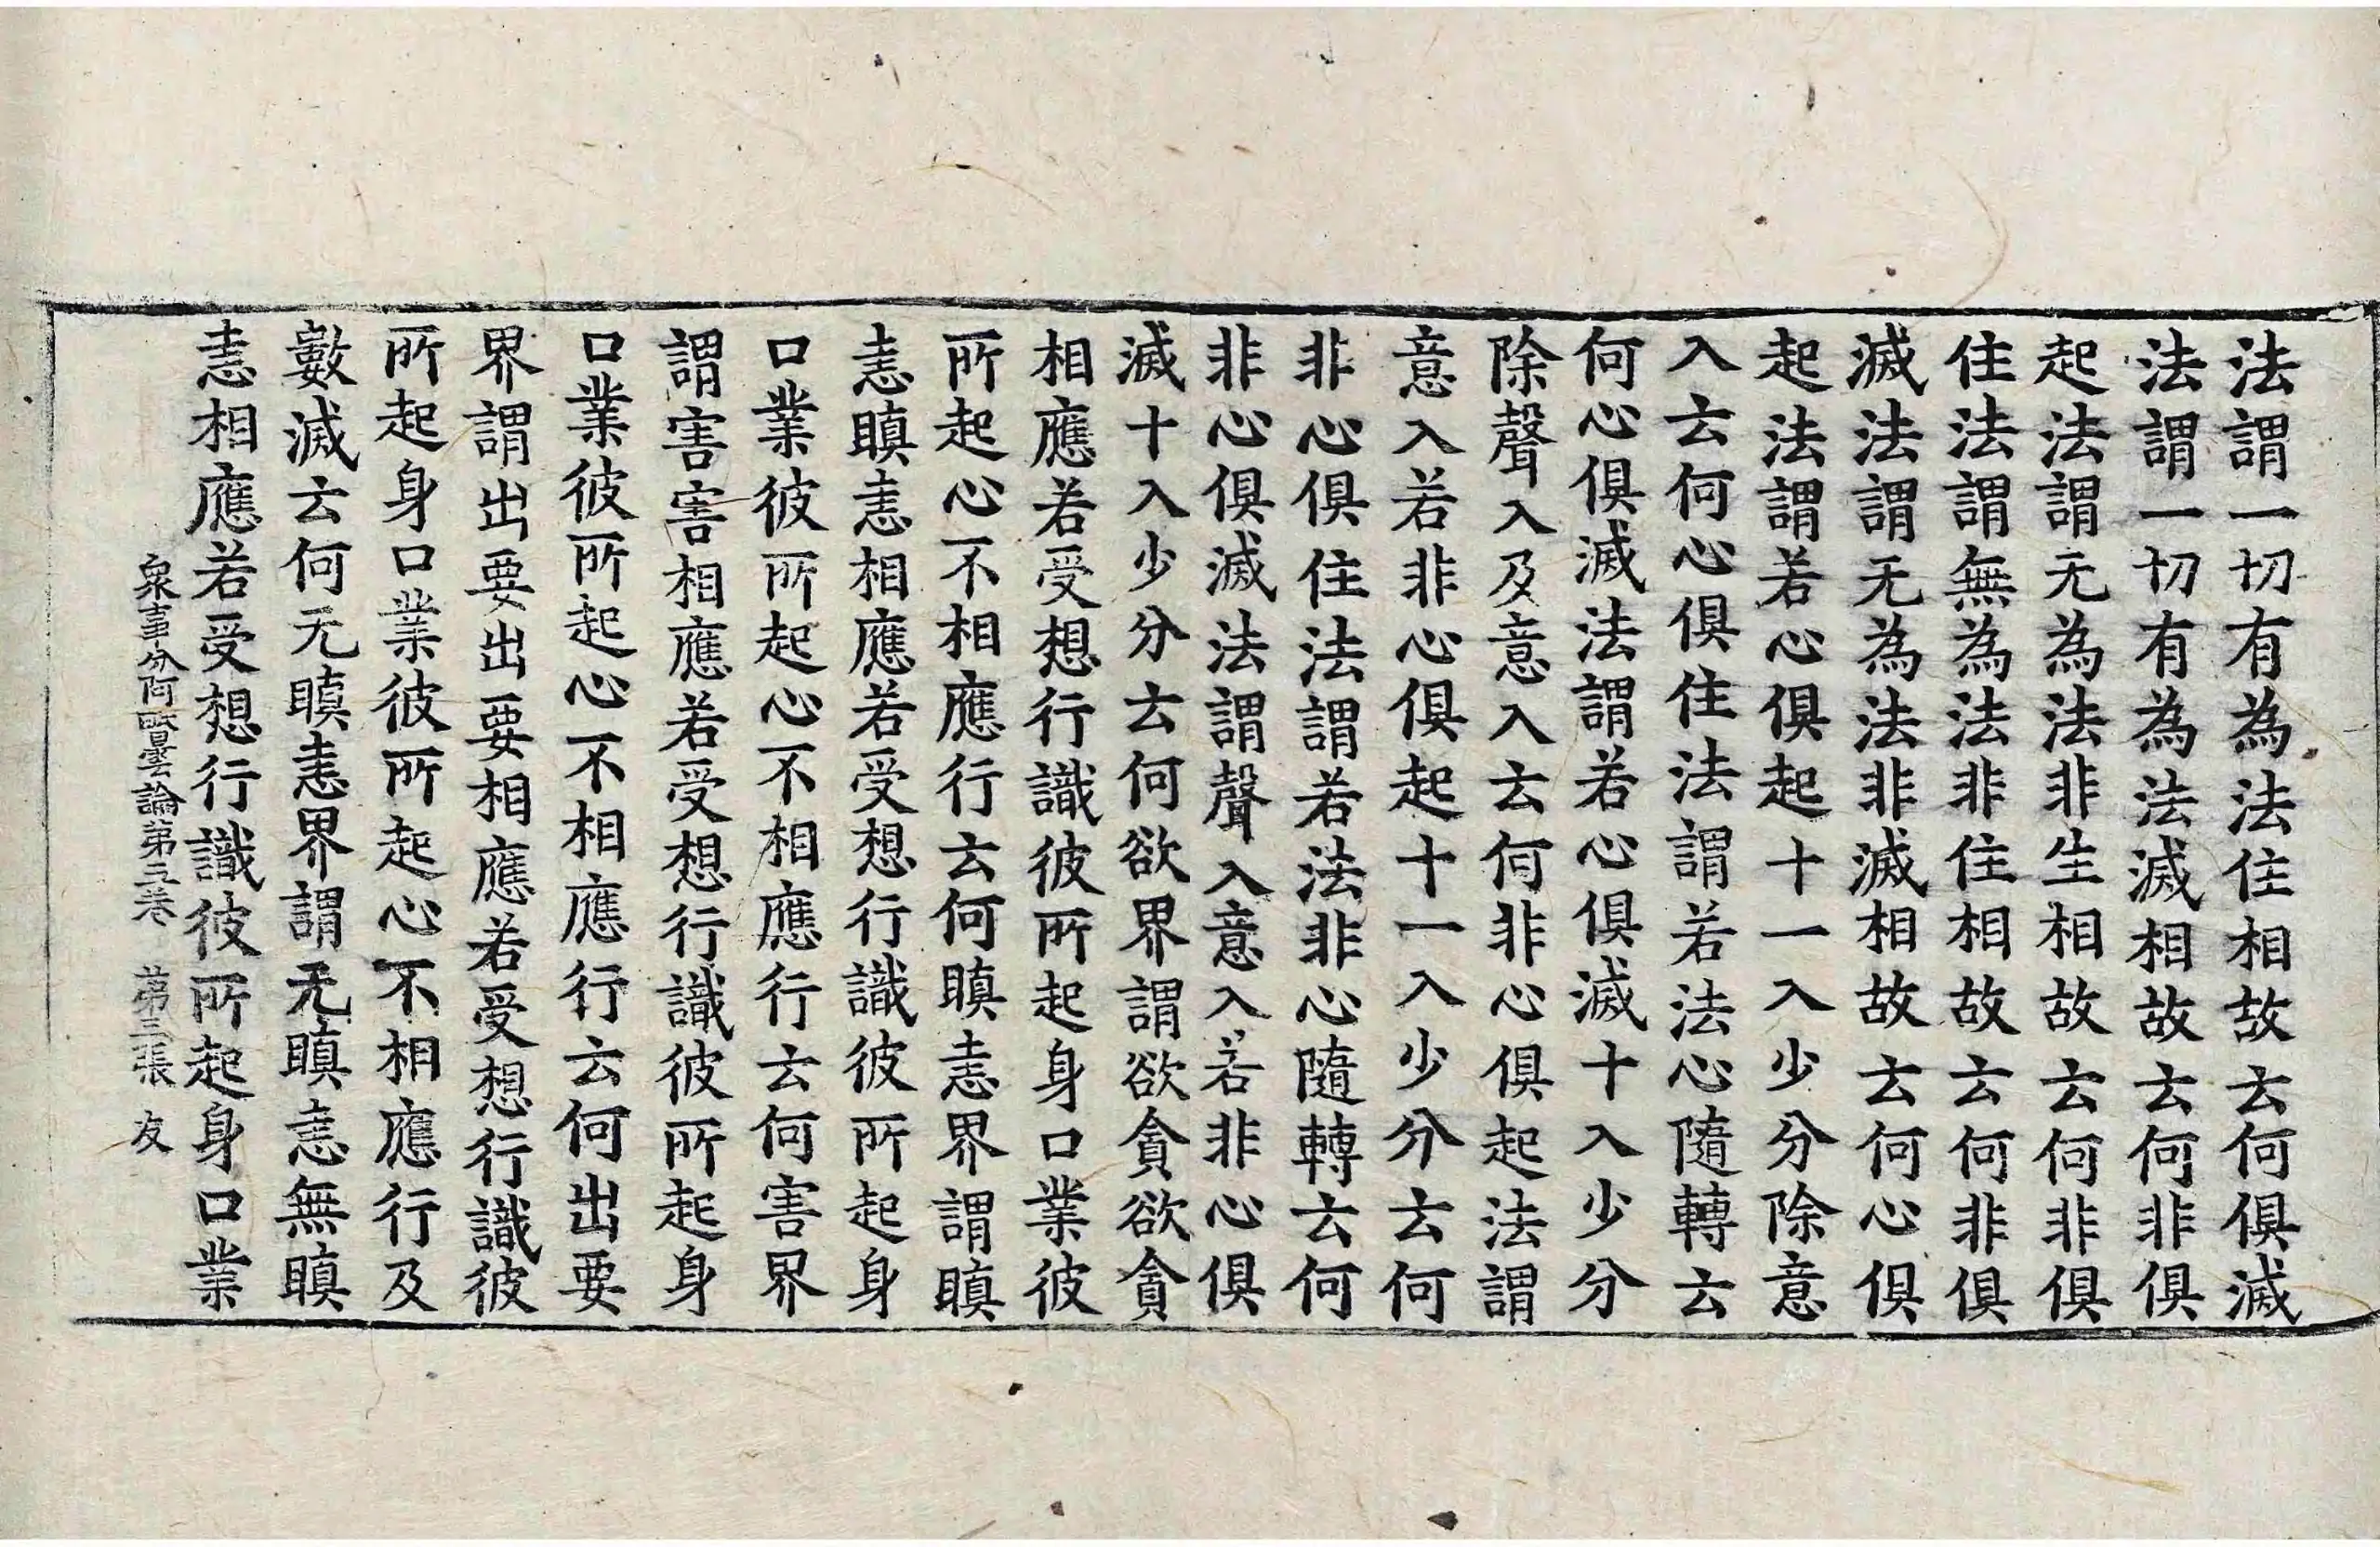 法謂一切有為法住相故云何俱滅
法謂一切有為法滅相故云何非俱
起法謂无為法非生相故云何非俱
住法謂無為法非住相故云何非俱
滅法謂无為法非滅相故云何心俱
起法謂若心俱起十一入少分除意
入云何心俱住法謂若法心隨轉云
何心俱滅法謂若心俱滅十入少分
除聲入及意入云何非心俱起法謂
意入若非心俱起十一入少分云何
非心俱住法謂若法非心隨轉云何
非心俱滅法謂聲入意入若非心俱
滅十入少分云何欲界謂欲貪欲貪
相應若受想行識彼所起身口業彼
所起心不相應行云何瞋恚界謂瞋
恚瞋恚相應若受想行識彼所起身
口業彼所起心不相應行云何害界
謂害害相應若受想行識彼所起身
口業彼所起心不相應行云何出要
界謂出要出要相應若受想行識彼
所起身口業彼所起心不相應行及
數滅云何无瞋恚界謂无瞋恚無瞋
恚相應若受想行識彼所起身口業
衆事分阿毗曇論第五卷 第三張 友